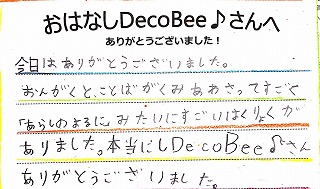 おはなしDecoBee♪さんへ
ありがとうございました!
今日はありがとうございました。
おんがくと、ことばがくみあわさってすごく
「あらしのよるに」みたいにすごいはくりょくが
ありました。本当にしDecoBee♪さん
ありがとうございました。